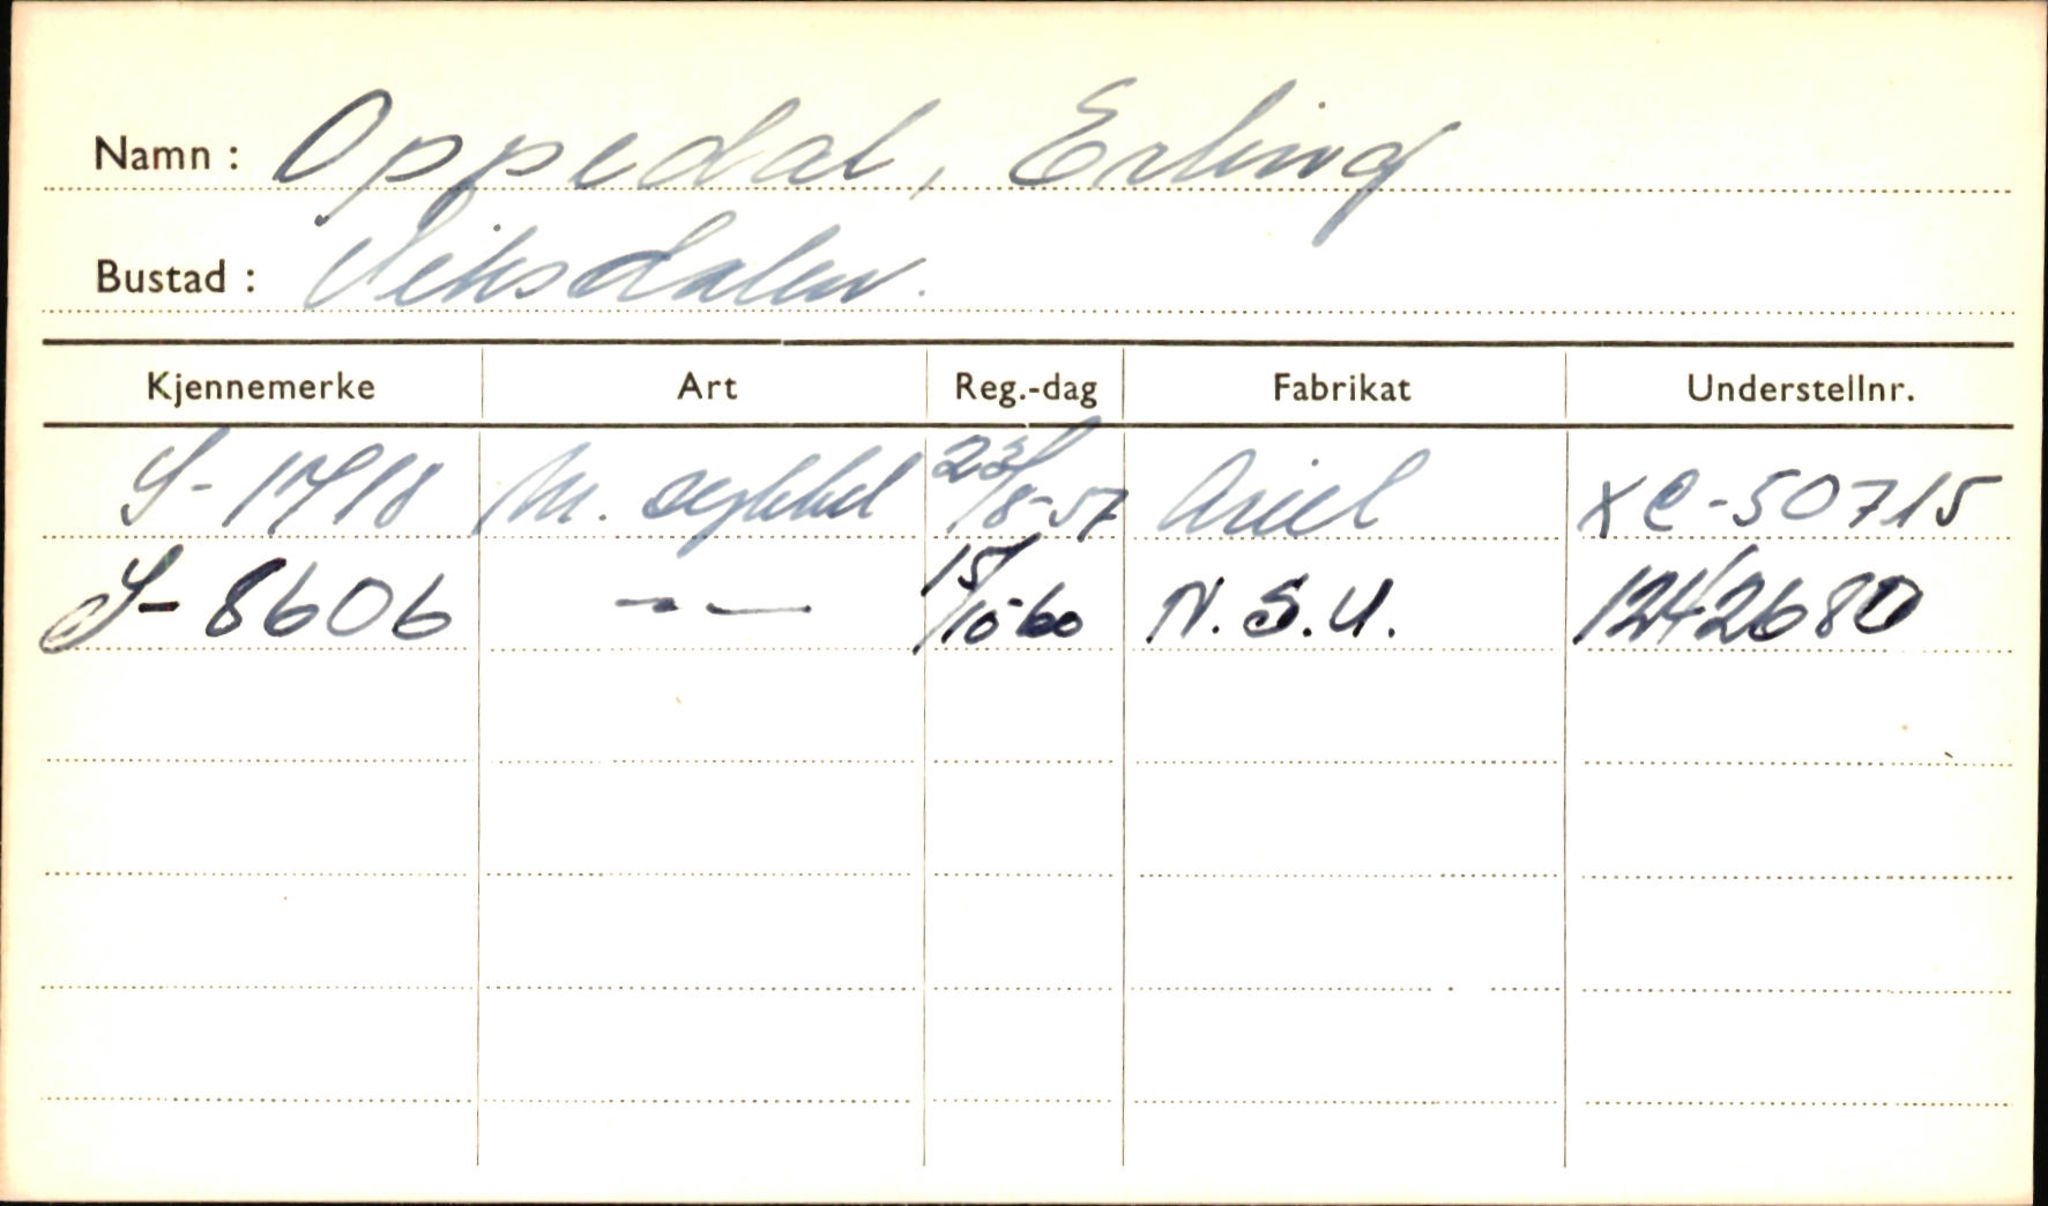 Namn : Oppedal, Erling
Bustad : Viksdalen.
Kjennemerke Art Reg.-dag Fabrikat Understellnr.
S-1718 M. sykkel 23/8-57 Ariel XC-50715
S-8606 -"- 15/10-60 N.S.U. 1242680